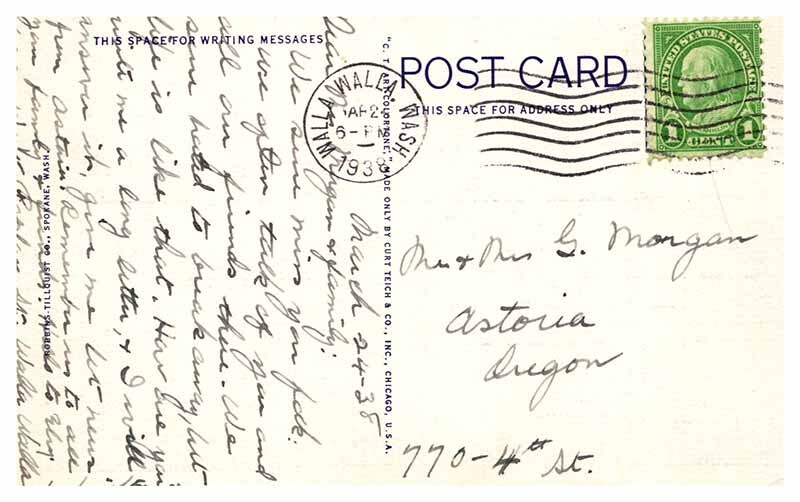 THIS SPACE FOR WRITING MESSAGES
POST CARD
THIS SPACE FOR ADDRESS ONLY
"C. T. ART-COLORTONE," MADE ONLY BY CURT TEICH & CO., INC., CHICAGO, U.S.A.
ROBBINS-TILLQUIST CO., SPOKANE, WASH.
WALLA WALLA, WASH
6-PM
1938
UNITED STATES POSTAGE
1 1
Mr & Mrs G. Morgan
Astoria
Oregon
770-4th St.
March 24-38
Dear & family:
We sure miss you folk.
We often talk of you and
all our friends there. We
sure hated to break away, but
life is like that. How are you
write me a long letter, & I will
answer it, give me let news
from Astoria. Remember us to all
your family & friends.
Walla Walla